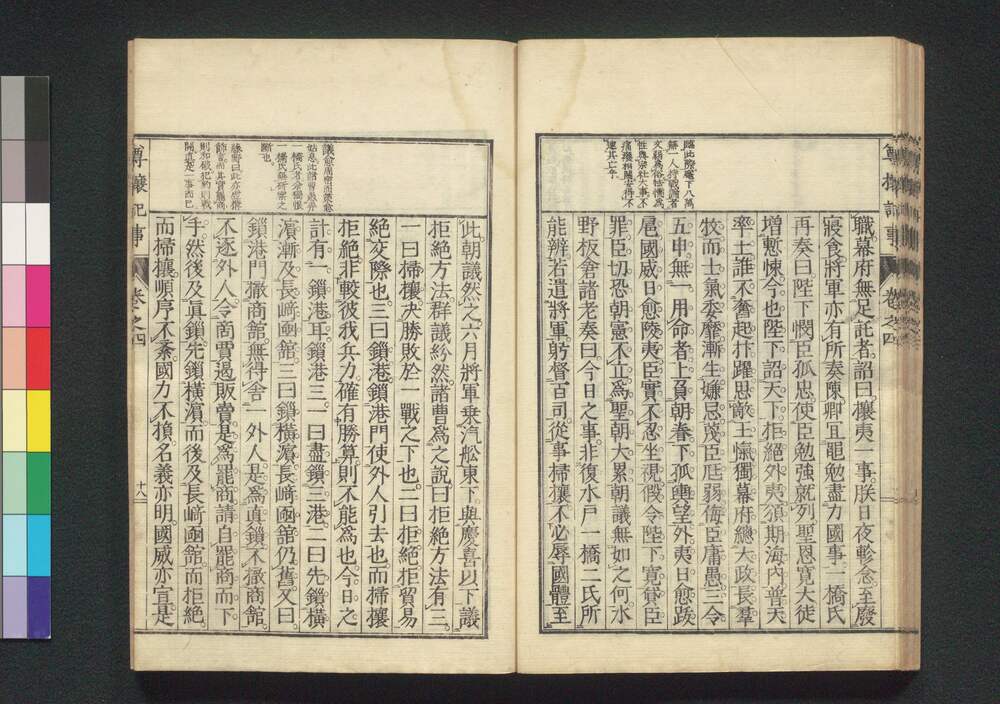 職幕府無足託者詔曰攘夷一事朕日夜軫念至廢
寢食將軍亦有所奏陳卿宜黽勉盡力國事一橋氏
再奏曰陛下憫臣孤忠使臣勉強就列聖恩寬大徒
増慙悚今也陛下詔天下拒絕外夷須期海内普天
率土誰不奮起抃躍思敵王愾獨幕府總大政長羣
牧而士氣委靡漸生嫌忌蔑臣尫弱侮臣庸愚三令
五申無一用命者上負朝眷下孤輿望外夷日愈跋
扈國威日愈陵夷臣實不忍坐視假令陛下寬貸臣
罪臣切恐朝憲不立爲聖朝大累朝議無如之何水
野板倉諸老奏曰今日之事非復水戸一橋二氏所
能辨若遣將軍躬督百司從事掃攘不必辱國體至
此朝議然之六月將軍乗汽舩東下與慶喜以下議
拒絕方法群議紛然諸曹爲之說曰拒絕方法有三
一曰掃攘决勝敗於一戰之下也二曰拒絕拒貿易
絕交際也三曰鎖港鎖港門使外人引去也而掃攘
拒絕非較彼我兵力確有勝算則不能爲也今日之
計有一鎖港耳鎖港三一曰盡鎖三港二曰先鎖横
濱漸及長﨑凾館三曰鎖横濱長﨑凾館仍舊又曰
鎖港門撤商館無得舎一外人是爲真鎖不撤商館
不逐外人令啇賈遏販賣是爲罷商請自罷商而下
手然後及真鎖先鎖横濱而後及長﨑凾館而拒絕
而掃攘順序不紊國力不損名義亦明國威亦宣是
卷之四
十八